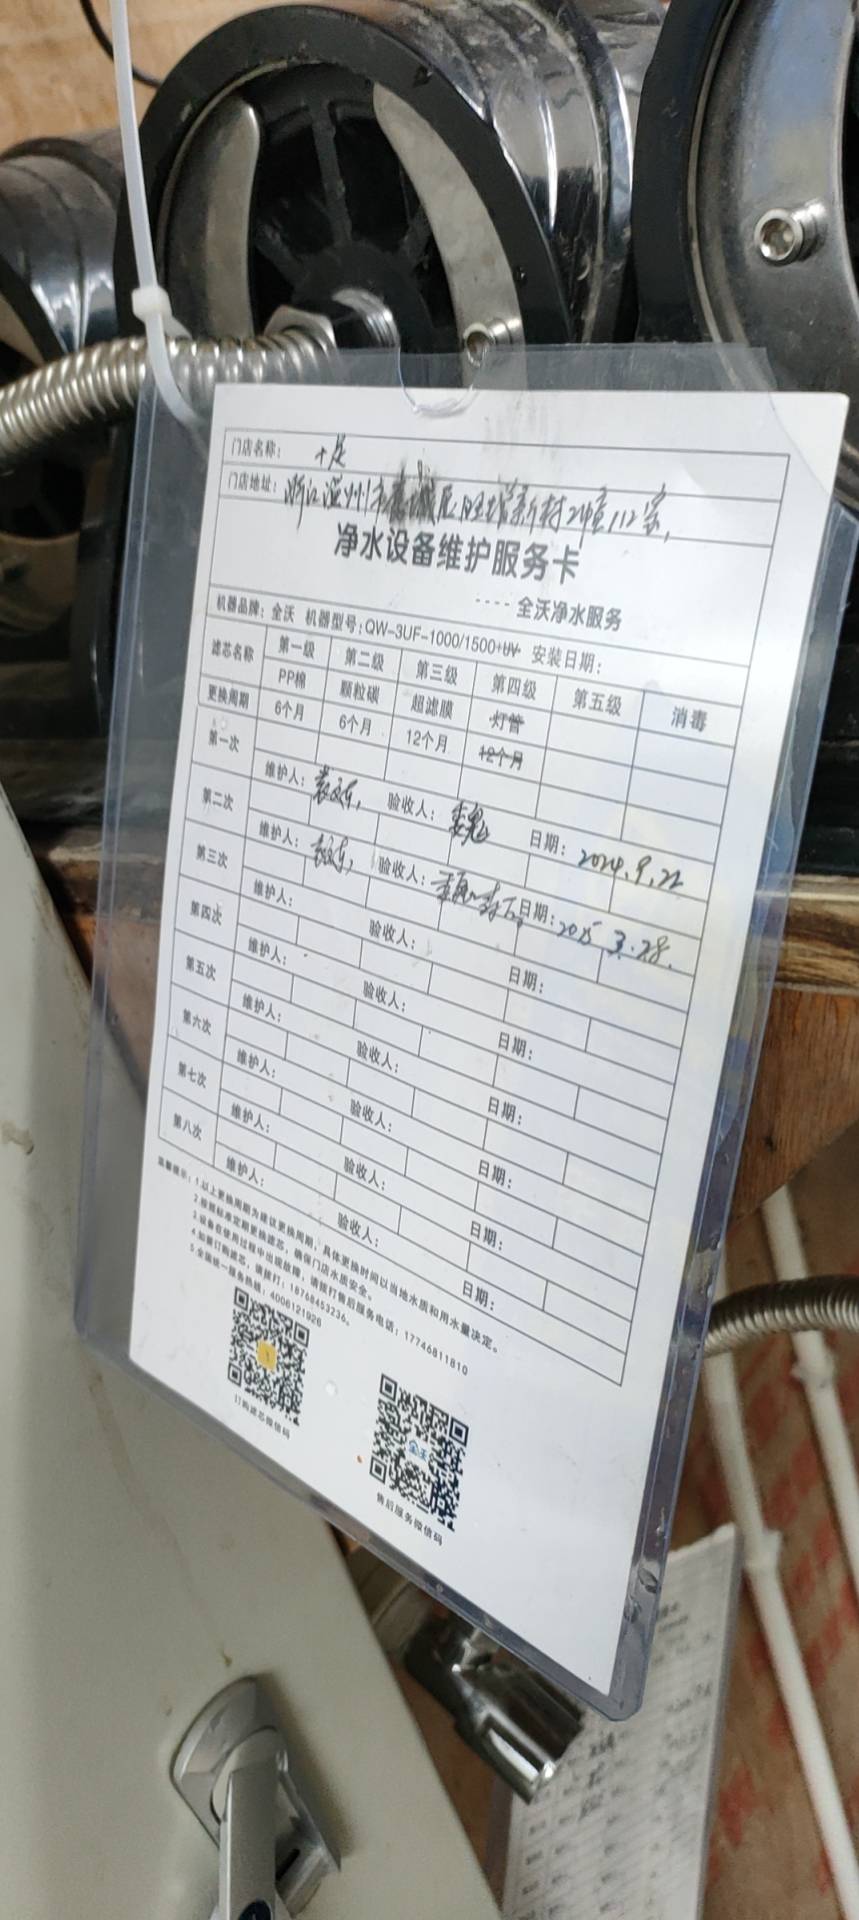 门店名称: 十足
门店地址: 浙江温州市鹿城区
净水设备维护服务卡
---- 全沃净水服务
机器品牌: 全沃 机器型号: QW-3UF-1000/1500+UV 安装日期:
滤芯名称 第一级 第二级 第三级 第四级 第五级 消毒
PP棉 颗粒碳 超滤膜 灯管
更换周期 6个月 6个月 12个月 12个月
第一次
维护人: 验收人: 日期: 2024.9.22
第二次
维护人: 验收人: 日期: 2025 3.28.
第三次
维护人: 验收人: 日期:
第四次
维护人: 验收人: 日期:
第五次
维护人: 验收人: 日期:
第六次
维护人: 验收人: 日期:
第七次
维护人: 验收人: 日期:
第八次
维护人: 验收人: 日期:
温馨提示: 1.以上更换周期为建议更换周期, 具体更换时间以当地水质和用水量决定。
2.根据标准定期更换滤芯, 确保门店水质安全。
3.设备在使用过程中出现故障, 请拨打售后服务电话: 17746811810
4.如需订购滤芯, 请拨打: 18768453236。
5.全国统一服务热线: 4006121926
订购滤芯微信码
全沃
售后服务微信码